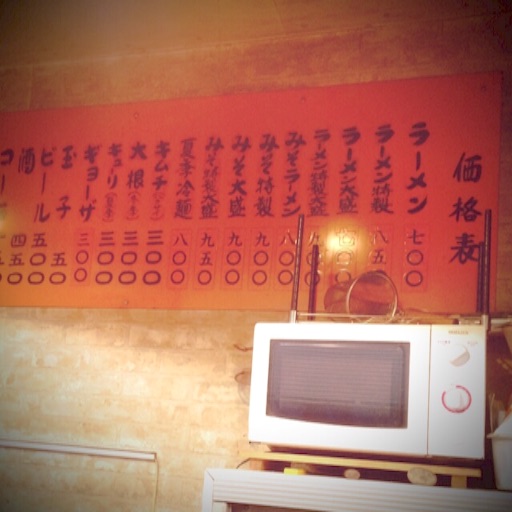 価格表
ラーメン 七〇〇
ラーメン特製 八五〇
ラーメン大盛
ラーメン特製大盛
みそラーメン 八
みそ特製 九〇〇
みそ大盛 九〇〇
みそ特製大盛 九五〇
夏季冷麺 八〇〇
キムチ 三〇〇
大根 三〇〇
キュリ 三〇〇
ギョーザ 三〇〇
玉子 五〇
ビール 五五〇
酒 四五〇
コー